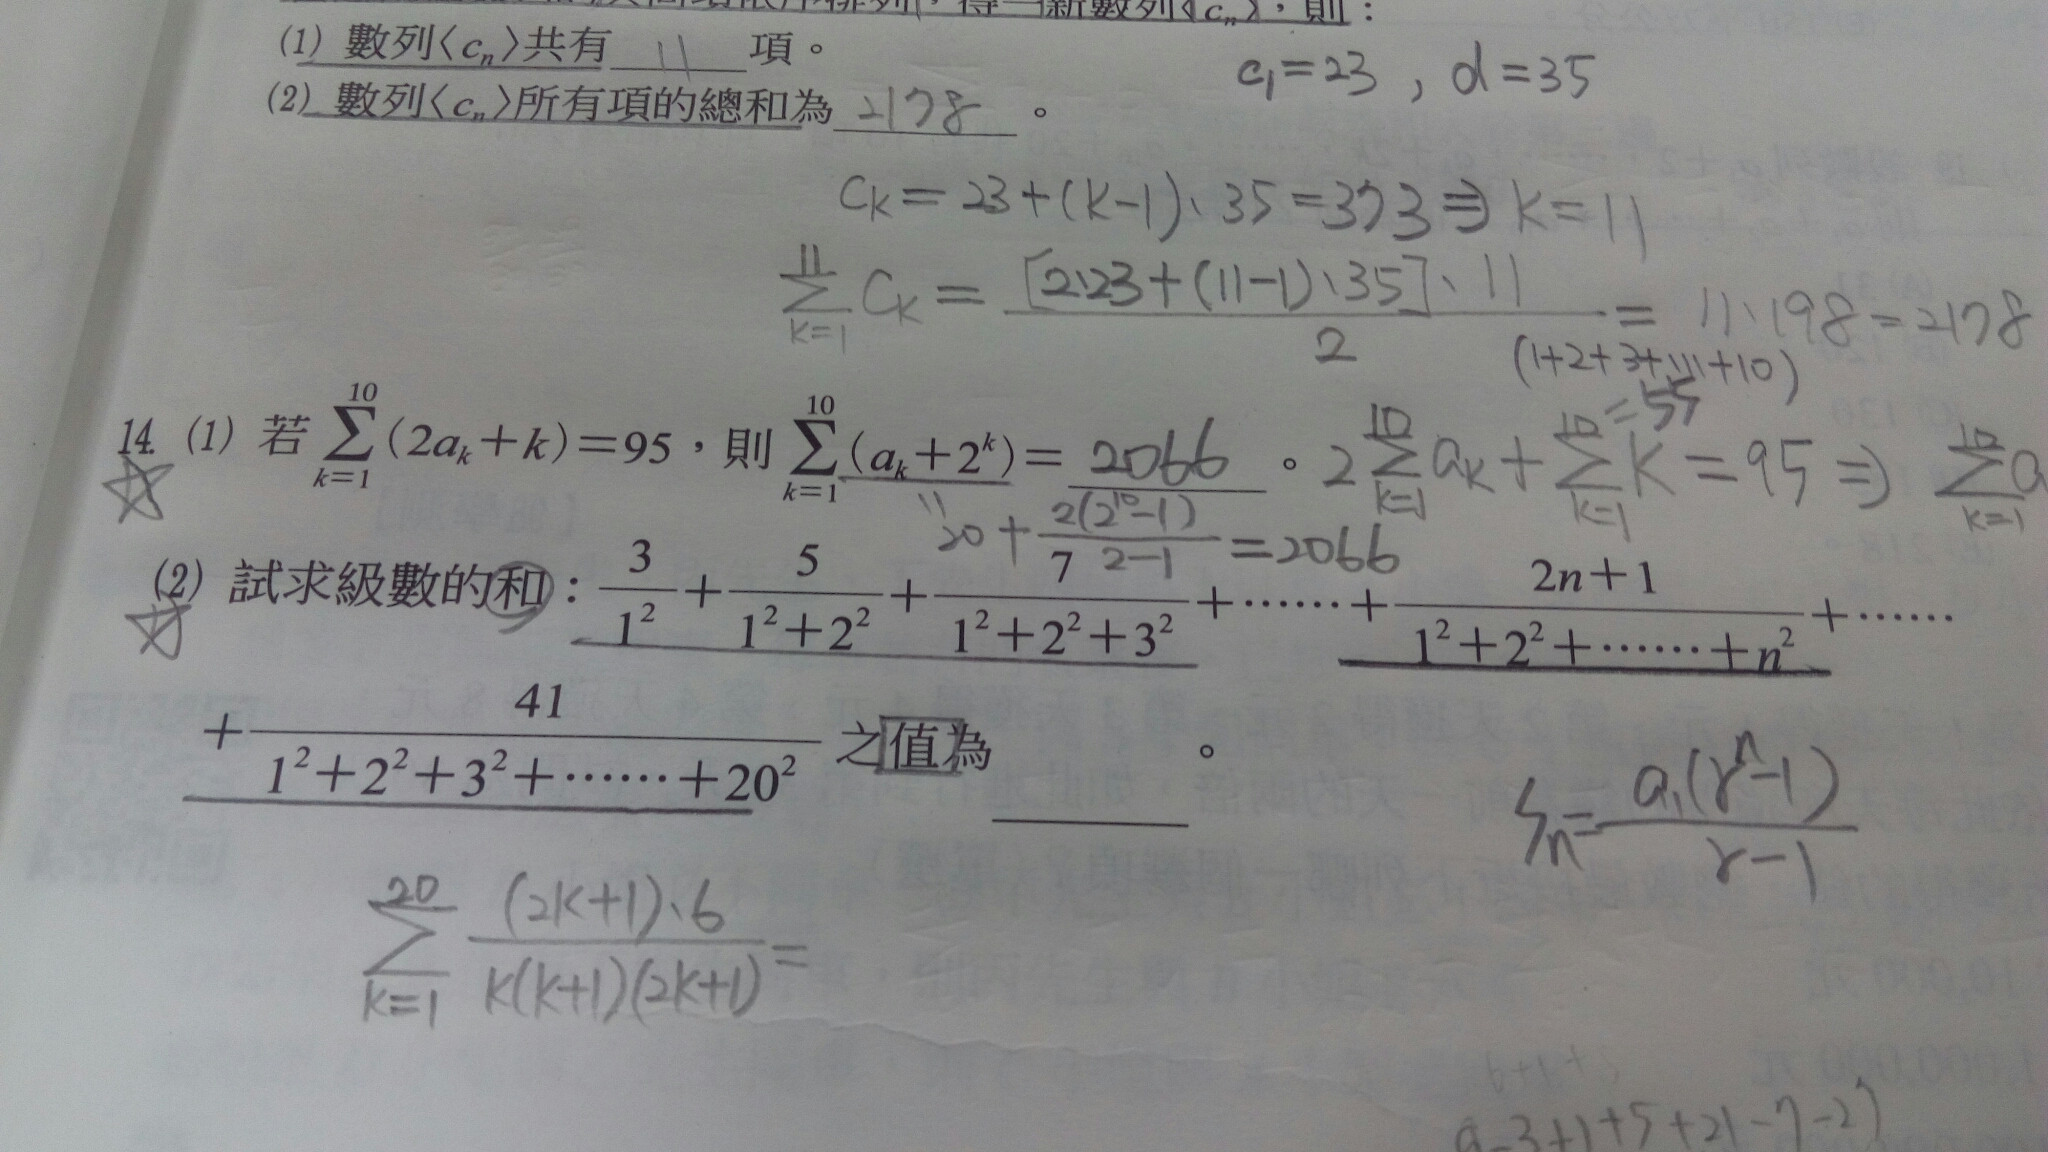 得一新數列⟨cₙ⟩，則：
(1) 數列⟨cₙ⟩共有 11 項。
c₁=23 , d=35
(2) 數列⟨cₙ⟩所有項的總和為 2178 。
Cₖ = 23+(k-1)·35=373⇒k=11
∑_{k=1}^{11} Cₖ = [2·23+(11-1)·35]·11 / 2 = 11·198=2178
(1+2+3+…+10)
=55
14. (1) 若 ∑_{k=1}^{10}(2aₖ+k)=95，則 ∑_{k=1}^{10}(aₖ+2ᵏ)= 2066 。 2∑_{k=1}^{10}aₖ+∑_{k=1}^{10}k=95⇒ ∑_{k=1}^{10}a
20 + 2(2¹⁰-1) / 2-1 =2066
(2) 試求級數的和：3/1² + 5/(1²+2²) + 7/(1²+2²+3²) +……+ (2n+1)/(1²+2²+……+n²) +……
+ 41/(1²+2²+3²+……+20²) 之值為 。
Sₙ= a₁(rⁿ-1) / r-1
∑_{k=1}^{20} (2k+1)·6 / k(k+1)(2k+1) =